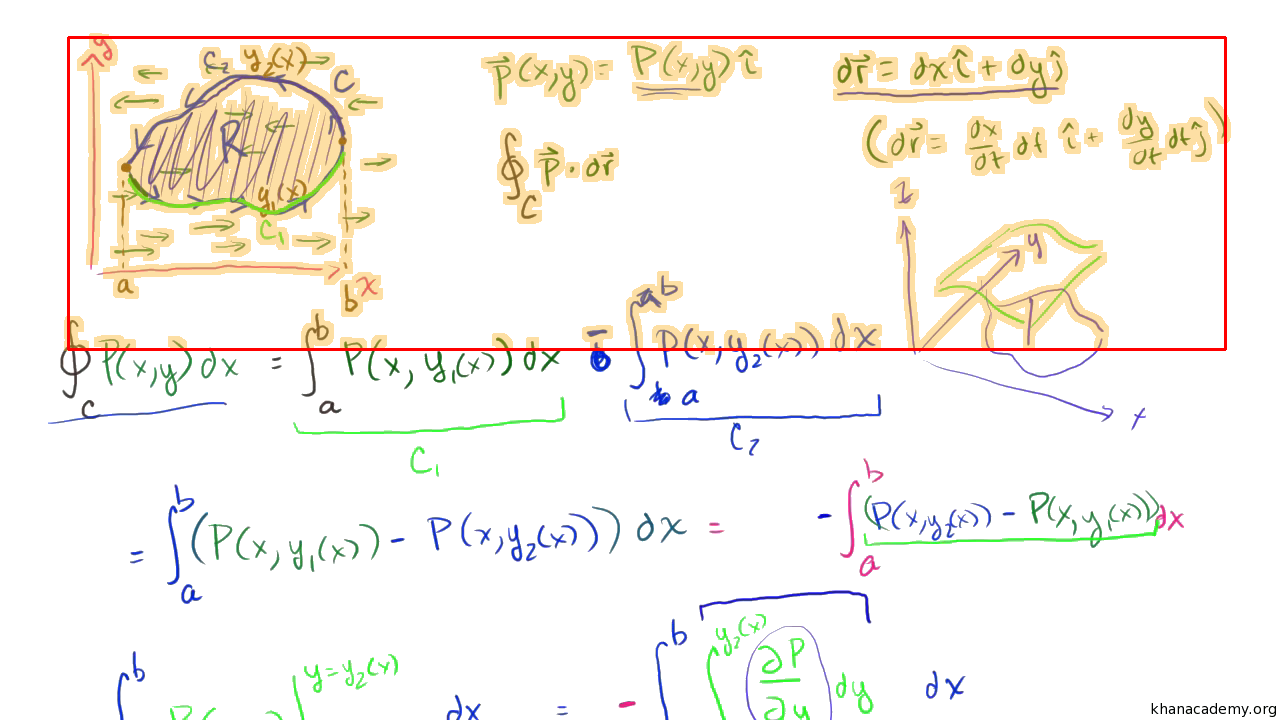 y
C₂ y₂(x)
C
R
y₁(x)
C₁
a
b x
P⃗(x,y) = P(x,y) î
∮_C P⃗ · dr⃗
dr⃗ = dx î + dy ĵ
(dr⃗ = dx/dt dt î + dy/dt dt ĵ)
z
y
x
∮_C P(x,y) dx = ∫_a^b P(x, y₁(x)) dx - ∫_a^b P(x, y₂(x)) dx
C₁
C₂
= ∫_a^b (P(x, y₁(x)) - P(x, y₂(x))) dx = - ∫_a^b (P(x, y₂(x)) - P(x, y₁(x))) dx
b y = y₂(x) dx = - ∫^b ∫^{y₂(x)} ∂P/∂y dy dx
khanacademy.org